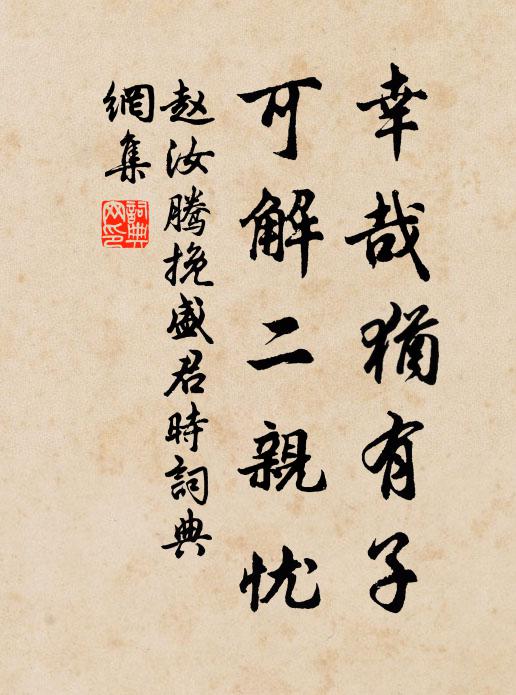 幸哉猶有子
可解二親忧
赵汝腾挽盛君時詞典
網集
詞典
网印